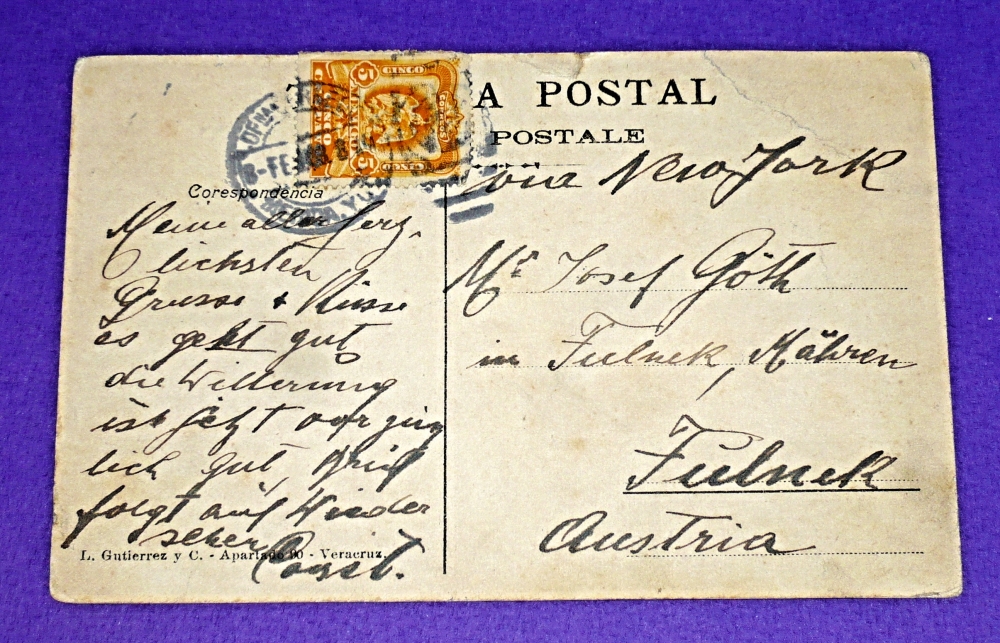 A POSTAL
POSTALE
CINCO
5
5
MEXICO
via New York
Corespondencia
Meine aller herz
lichsten
Grüsse + Küsse
es geht gut
die Witterung
ist jetzt vorzüg
lich gut, Brief
folgt auf Wieder
sehen
Mr Josef Göth
in Fulnek, Mähren
Fulnek
Austria
L. Gutierrez y C. - Apartado 90 - Veracruz.